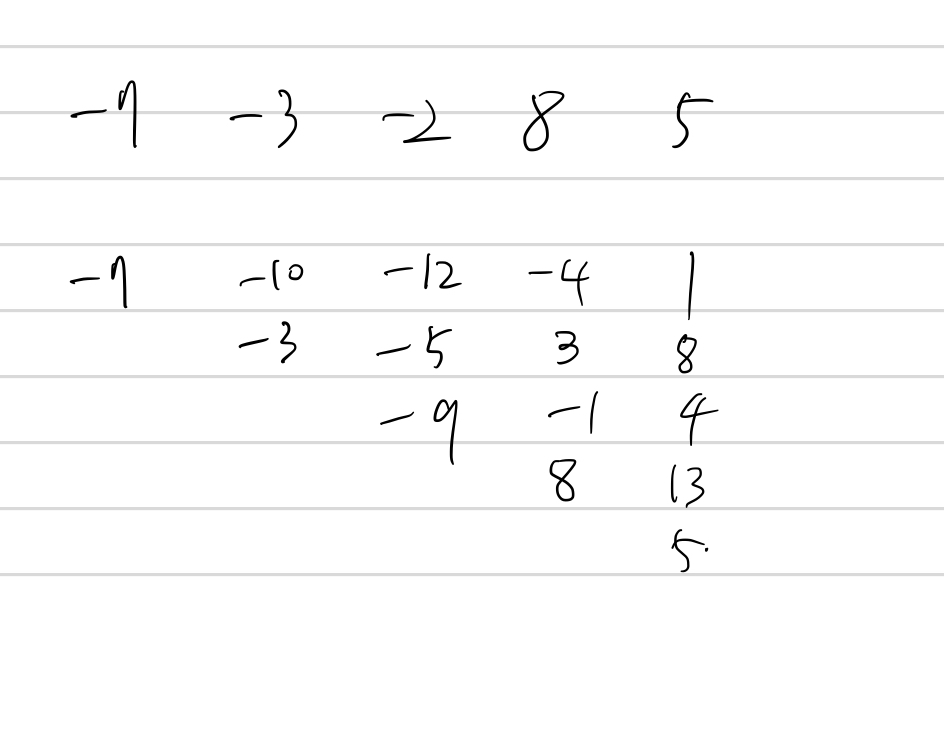 -7 -3 -2 8 5
-7 -10 -12 -4 1
-3 -5 3 8
-9 -1 4
8 13
5.